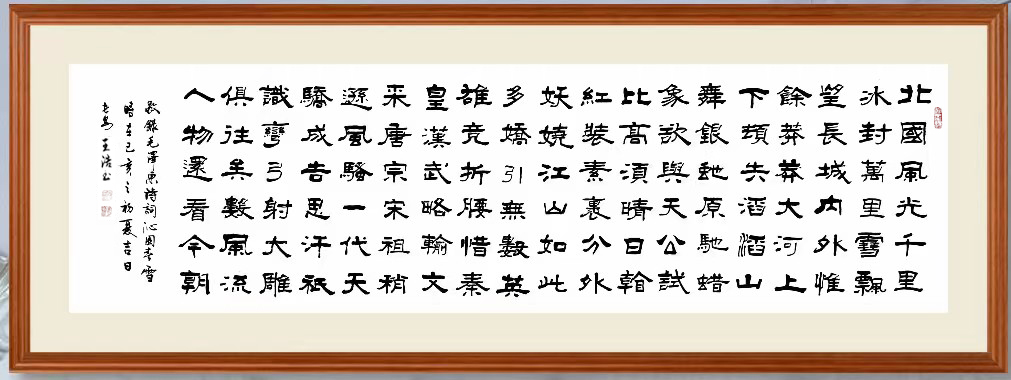 北國風光千里
冰封萬里雪飄
望長城內外惟
餘莽莽大河上
下頓失滔滔山
舞銀虵原馳蜡
象欲與天公試
比高須晴日看
紅裝素裹分外
妖嬈江山如此
多嬌引無數英
雄竞折腰惜秦
皇漢武略輸文
采唐宗宋祖稍
遜風騷一代天
驕成吉思汗祇
識彎弓射大雕
俱往矣數風流
人物還看今朝
敬錄毛澤東詩詞沁園春雪
時在己亥之初夏吉日
王书